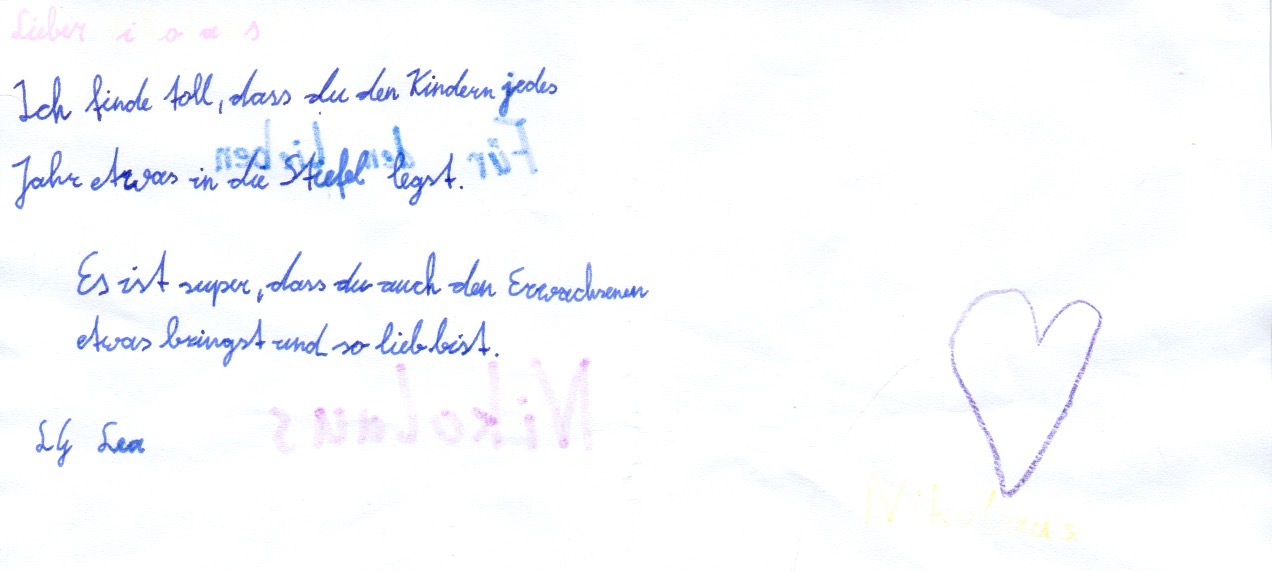 Lieber i o a s
Ich finde toll, dass du den Kindern jedes
Jahr etwas in die Stiefel legst.
Für den lieben
Es ist super, dass du auch den Erwachsenen
etwas bringst und so lieb bist.
Nikolaus
LG Lea
Nikolaus